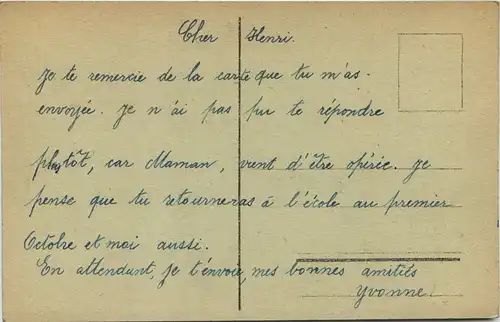 Cher Henri.
Je te remercie de la carte que tu m'as.
envoyée. Je n'ai pas pu te répondre
plutôt, car Maman, vient d'être opérée. Je
pense que tu retourneras à l'école au premier
Octobre et moi aussi.
En attendant, je t'envoie, mes bonnes amitiés
Yvonne.